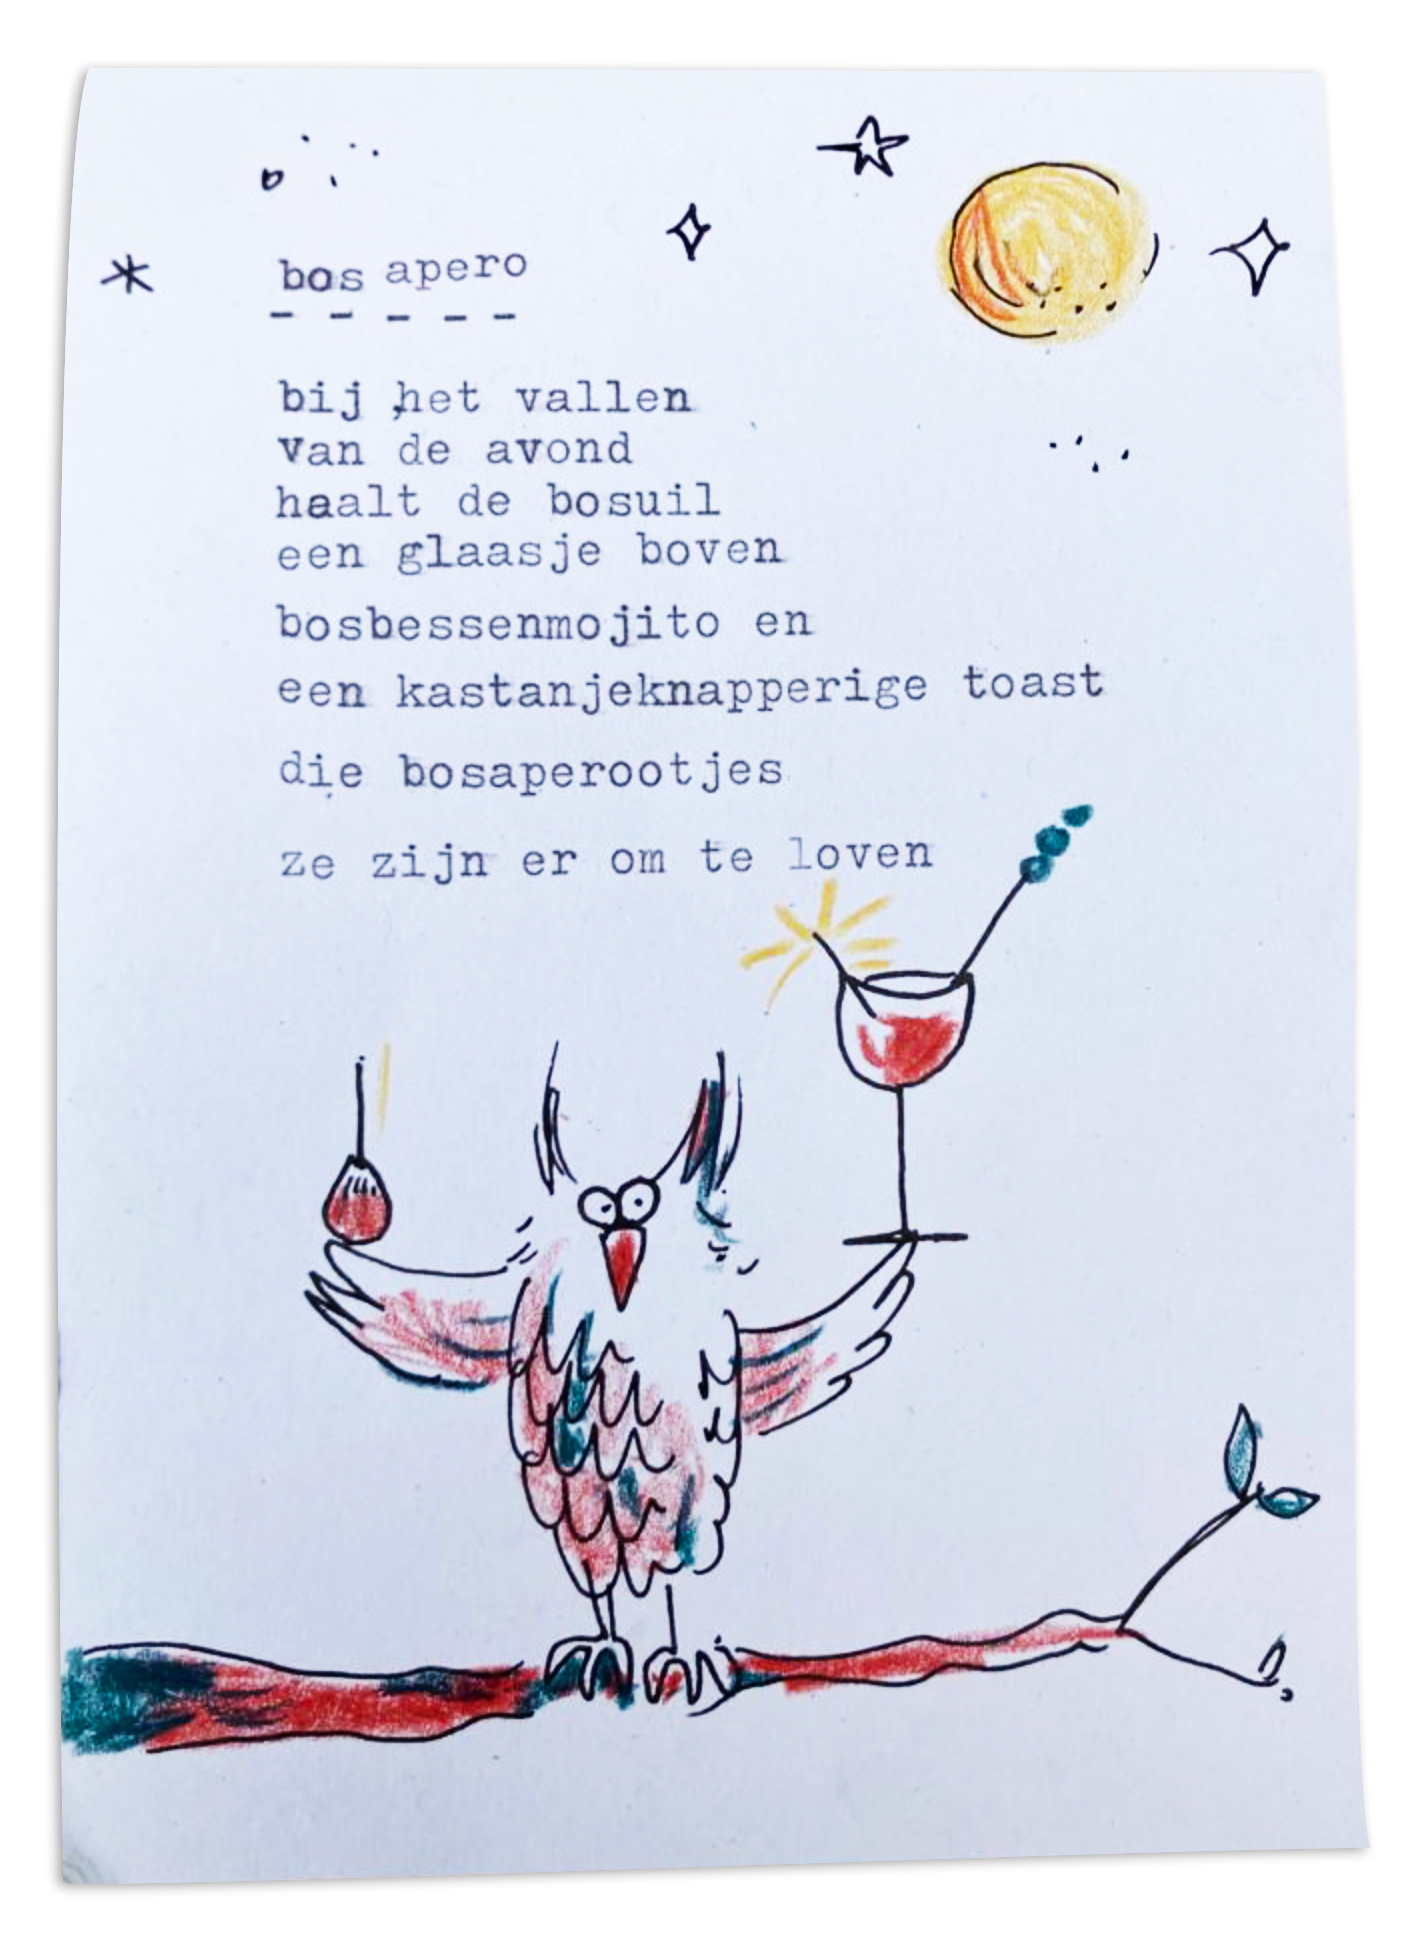 bos apero
- - - - -
bij het vallen
van de avond
haalt de bosuil
een glaasje boven
bosbessenmojito en
een kastanjeknapperige toast
die bosaperootjes
ze zijn er om te loven